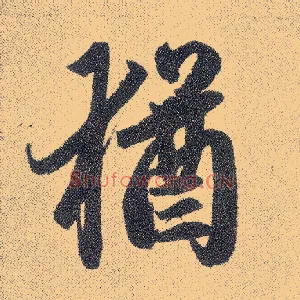 猶
Shufawang.CN